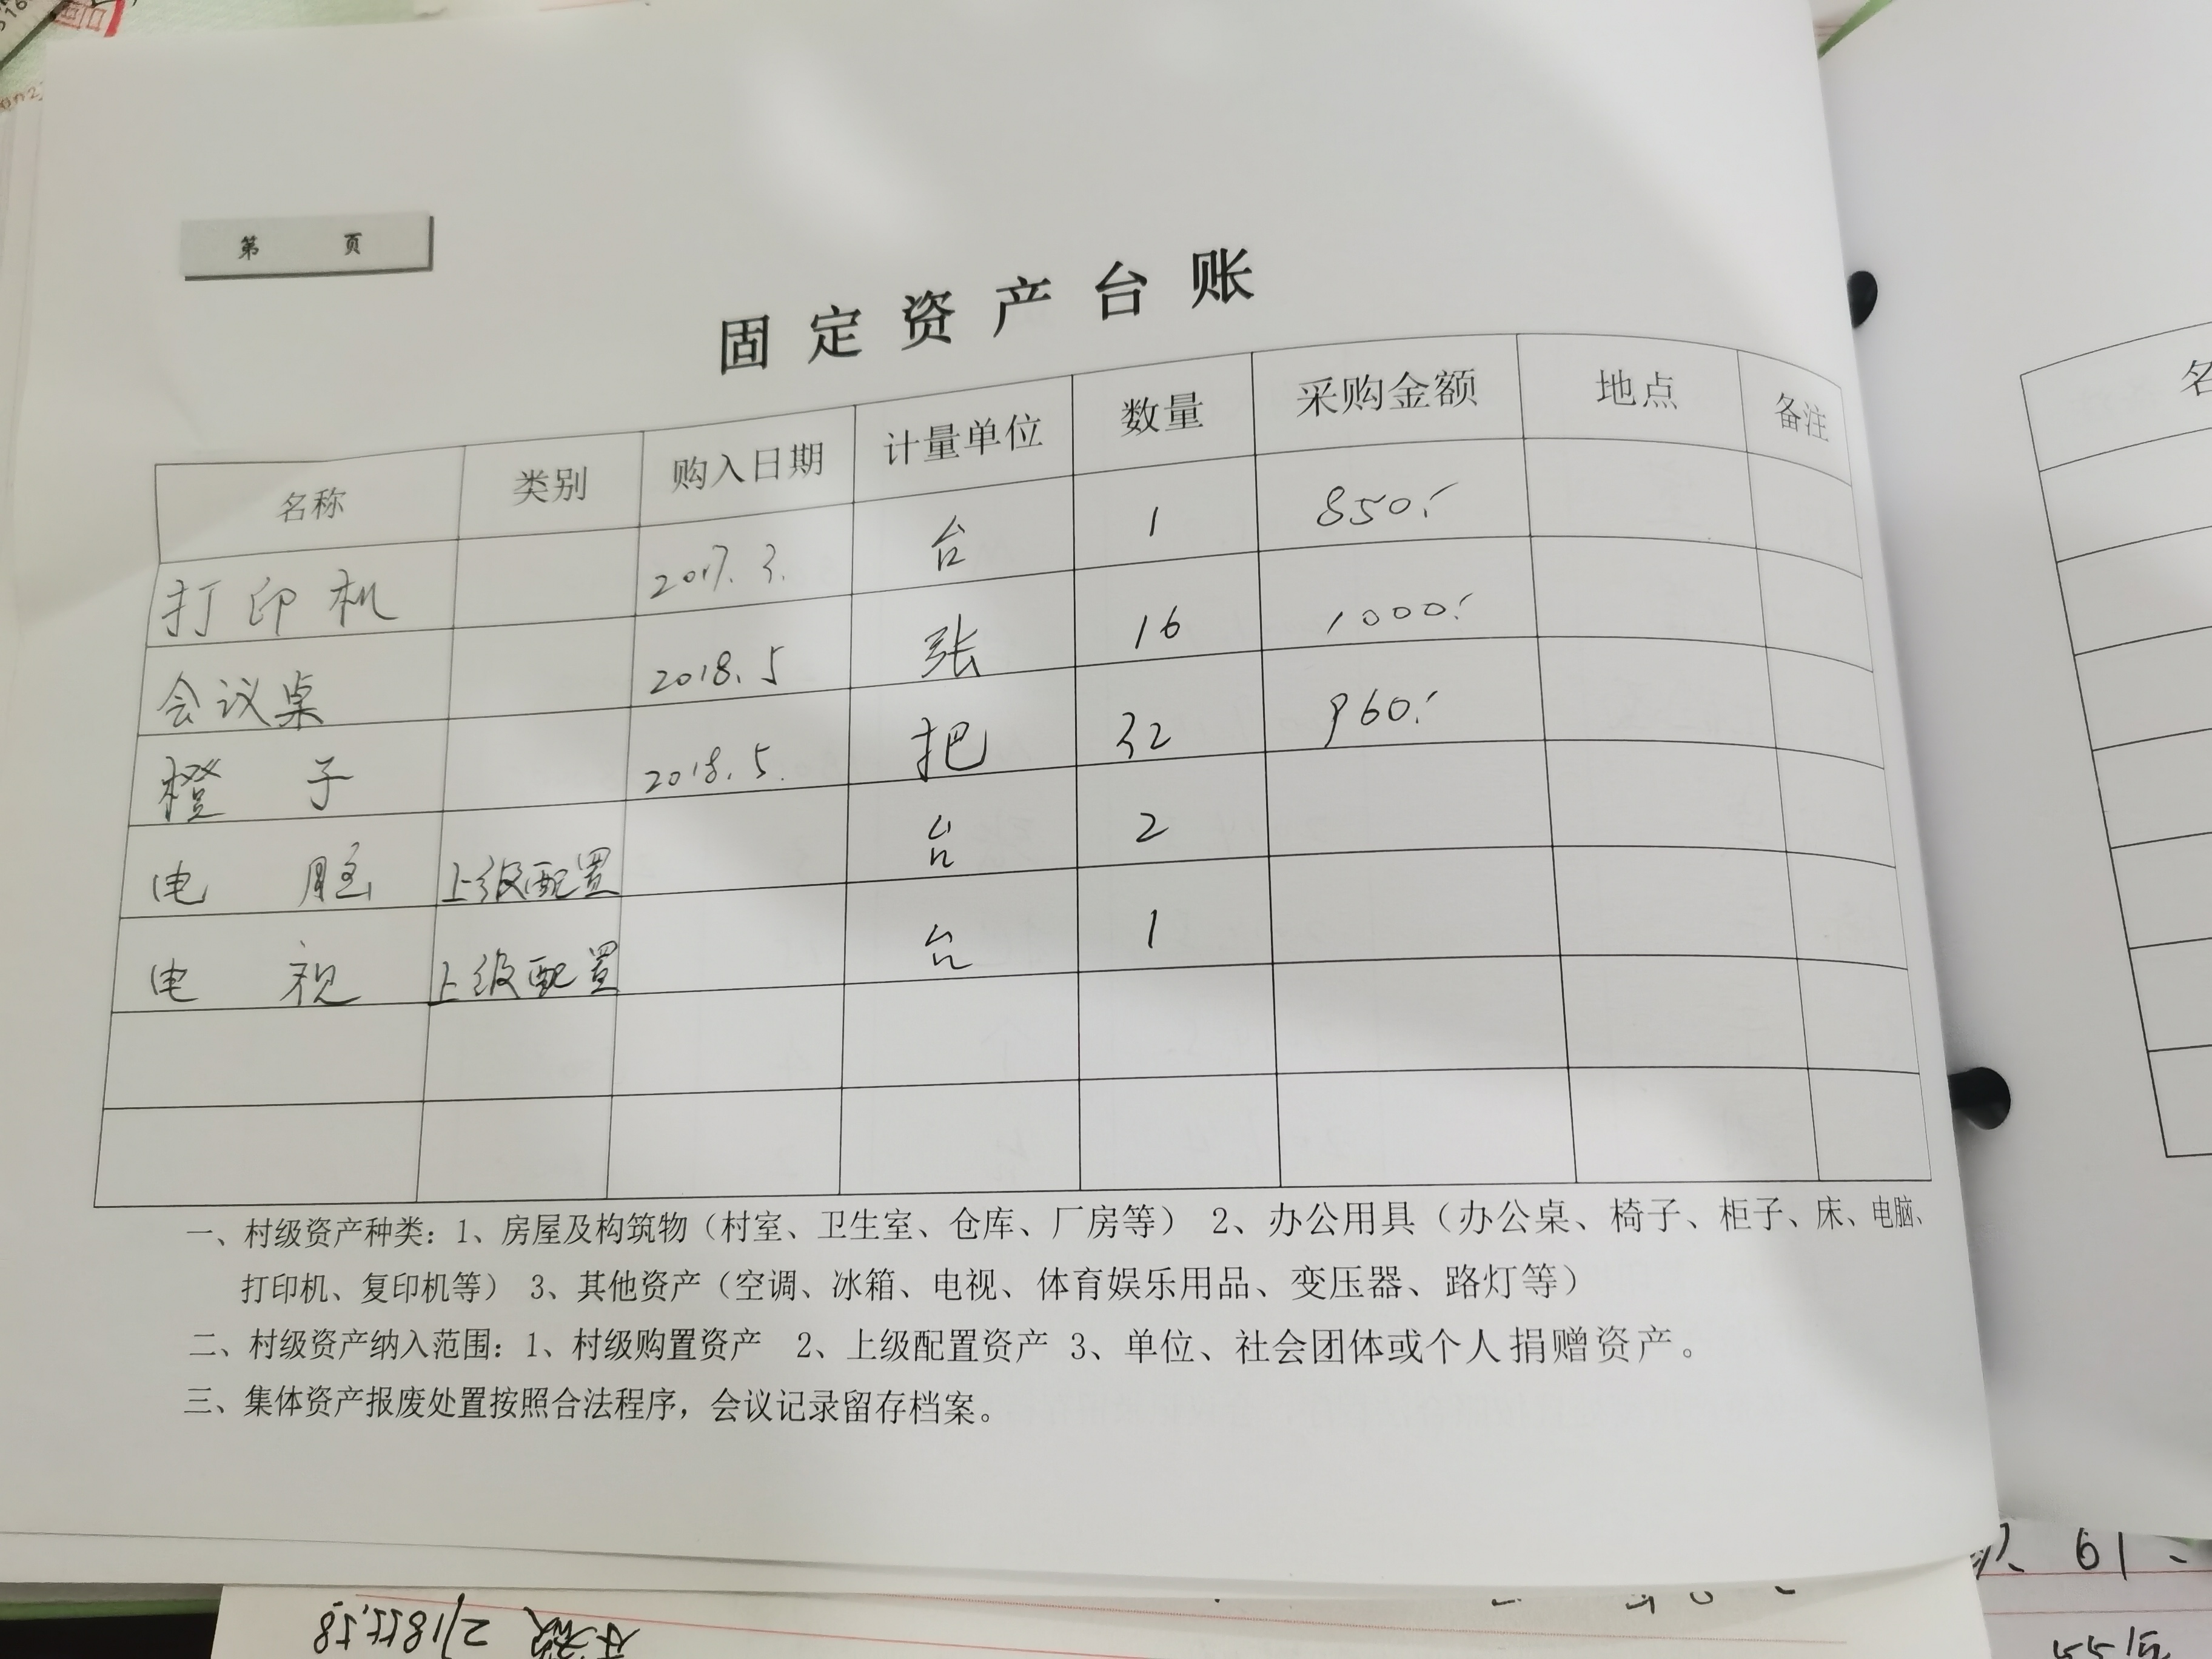 第 页
固定资产台账
名称 类别 购入日期 计量单位 数量 采购金额 地点 备注
打印机 2017.3. 台 1 850.
会议桌 2018.5 张 16 1000.
橙子 2018.5. 把 32 960.
电脑 上级配置 台 2
电视 上级配置 台 1
一、村级资产种类：1、房屋及构筑物（村室、卫生室、仓库、厂房等） 2、办公用具（办公桌、椅子、柜子、床、电脑、
打印机、复印机等） 3、其他资产（空调、冰箱、电视、体育娱乐用品、变压器、路灯等）
二、村级资产纳入范围：1、村级购置资产 2、上级配置资产 3、单位、社会团体或个人捐赠资产。
三、集体资产报废处置按照合法程序，会议记录留存档案。
名
61